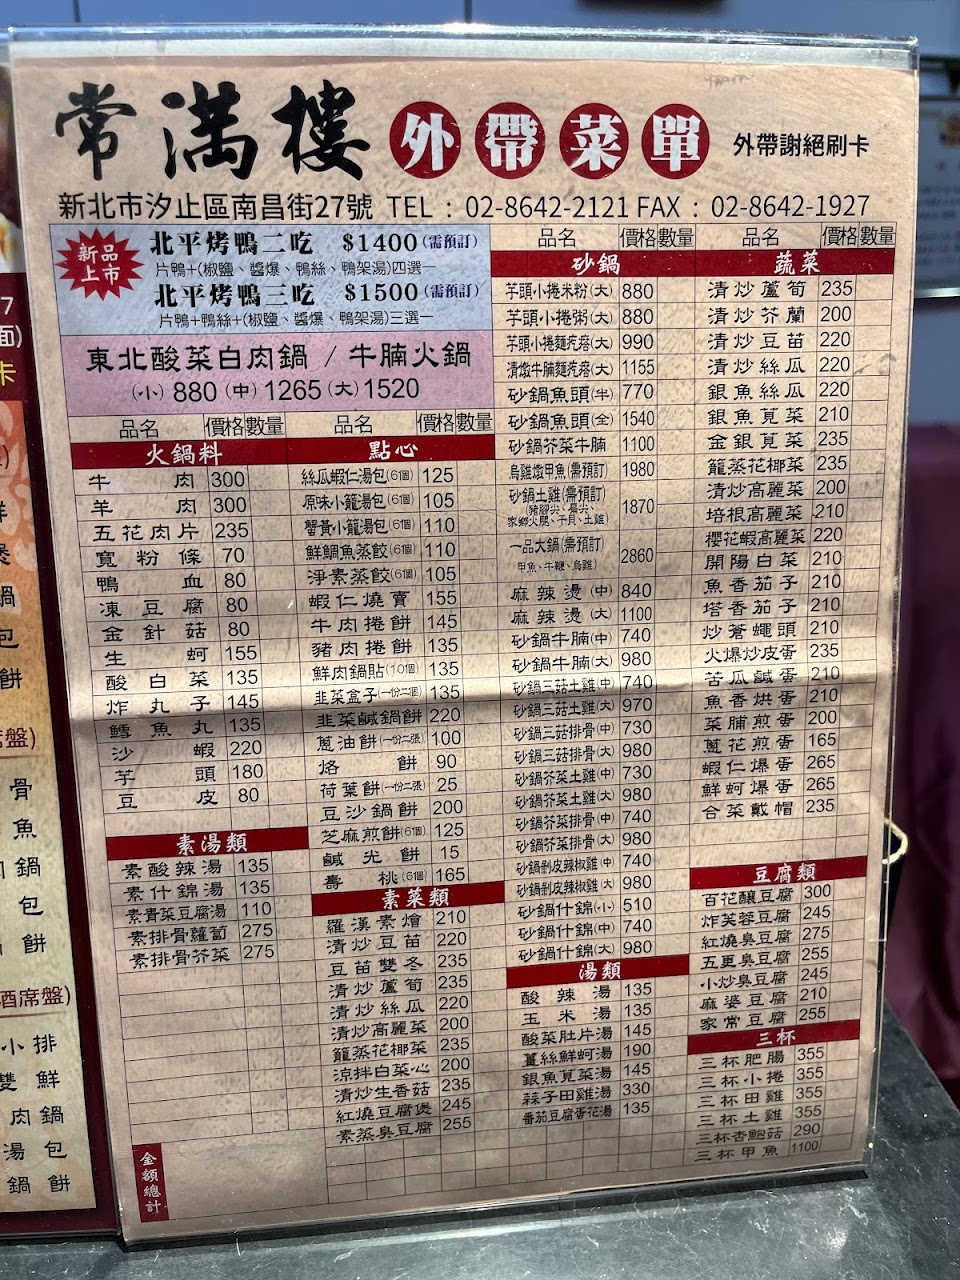 常滿樓 外帶菜單 外帶謝絕刷卡
新北市汐止區南昌街27號 TEL：02-8642-2121 FAX：02-8642-1927
新品上市
北平烤鴨二吃 $1400(需預訂)
片鴨+(椒鹽、醬爆、鴨絲、鴨架湯)四選一
北平烤鴨三吃 $1500(需預訂)
片鴨+鴨絲+(椒鹽、醬爆、鴨架湯)三選一
東北酸菜白肉鍋 / 牛腩火鍋
(小) 880 (中) 1265 (大) 1520
品名 價格 數量
火鍋料
牛肉 300
羊肉 300
五花肉片 235
寬粉條 70
鴨血 80
凍豆腐 80
金針菇 80
生蚵 155
酸白菜 135
炸丸子 145
鱈魚丸 135
沙蝦 220
芋頭 180
豆皮 80
素湯類
素酸辣湯 135
素什錦湯 135
素青菜豆腐湯 110
素排骨蘿蔔 275
素排骨芥菜 275
金額總計
品名 價格 數量
點心
絲瓜蝦仁湯包(6個) 125
原味小籠湯包(6個) 105
蟹黃小籠湯包(6個) 110
鮮鯛魚蒸餃(6個) 110
淨素蒸餃(6個) 105
蝦仁燒賣 155
牛肉捲餅 145
豬肉捲餅 135
鮮肉鍋貼(10個) 135
韭菜盒子(一份二個) 135
韭菜鹹鍋餅 220
蔥油餅(一份二張) 100
烙餅 90
荷葉餅(一份二張) 25
豆沙鍋餅 200
芝麻煎餅(6個) 125
鹹光餅 15
壽桃(6個) 165
素菜類
羅漢素燴 210
清炒豆苗 220
豆苗雙冬 235
清炒蘆筍 235
清炒絲瓜 220
清炒高麗菜 200
籠蒸花椰菜 235
涼拌白菜心 200
清炒生香菇 235
紅燒豆腐煲 245
素蒸臭豆腐 255
品名 價格 數量
砂鍋
芋頭小捲米粉(大) 880
芋頭小捲粥(大) 880
芋頭小捲麵疙瘩(大) 990
清燉牛腩麵疙瘩(大) 1155
砂鍋魚頭(半) 770
砂鍋魚頭(全) 1540
砂鍋芥菜牛腩 1100
烏雞燉甲魚(需預訂) 1980
砂鍋土雞(需預訂) 1870
(豬腳尖、扁尖、
家鄉火腿、干貝、土雞)
一品大鍋(需預訂) 2860
甲魚、牛鞭、烏雞)
麻辣燙(中) 840
麻辣燙(大) 1100
砂鍋牛腩(中) 740
砂鍋牛腩(大) 980
砂鍋三菇土雞(中) 740
砂鍋三菇土雞(大) 970
砂鍋三菇排骨(中) 730
砂鍋三菇排骨(大) 980
砂鍋芥菜土雞(中) 730
砂鍋芥菜土雞(大) 980
砂鍋芥菜排骨(中) 740
砂鍋芥菜排骨(大) 980
砂鍋剝皮辣椒雞(中) 740
砂鍋剝皮辣椒雞(大) 980
砂鍋什錦(小) 510
砂鍋什錦(中) 740
砂鍋什錦(大) 980
湯類
酸辣湯 135
玉米湯 135
酸菜肚片湯 145
薑絲鮮蚵湯 190
銀魚莧菜湯 145
蒜子田雞湯 330
番茄豆腐蛋花湯 135
品名 價格 數量
蔬菜
清炒蘆筍 235
清炒芥蘭 200
清炒豆苗 220
清炒絲瓜 220
銀魚絲瓜 220
銀魚莧菜 210
金銀莧菜 235
籠蒸花椰菜 235
清炒高麗菜 200
培根高麗菜 210
櫻花蝦高麗菜 220
開陽白菜 210
魚香茄子 210
塔香茄子 210
炒蒼蠅頭 210
火爆炒皮蛋 235
苦瓜鹹蛋 210
魚香烘蛋 210
菜脯煎蛋 200
蔥花煎蛋 165
蝦仁爆蛋 265
鮮蚵爆蛋 265
合菜戴帽 235
豆腐類
百花釀豆腐 300
炸芙蓉豆腐 245
紅燒臭豆腐 275
五更臭豆腐 255
小炒臭豆腐 245
麻婆豆腐 210
家常豆腐 255
三杯
三杯肥腸 355
三杯小捲 355
三杯田雞 355
三杯土雞 355
三杯杏鮑菇 290
三杯甲魚 1100